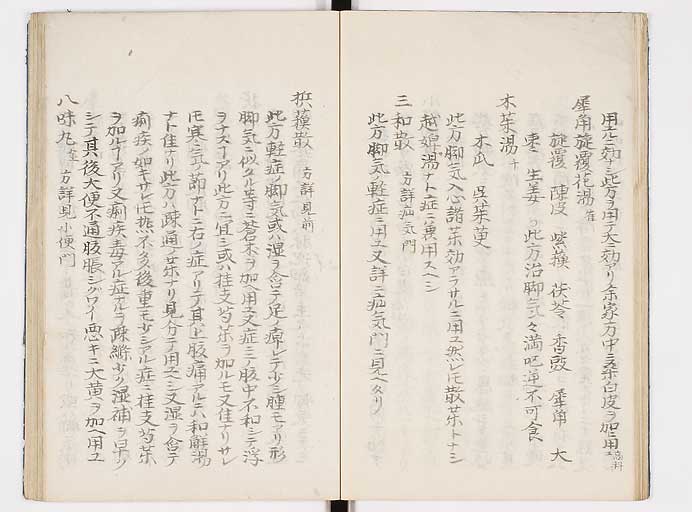 用エル効シ此方ヲ用テ大ニ効アリ余家方中ニ桑白皮ヲ加ヘ用ユ
犀角旋覆花湯
旋覆 陳皮 紫蘇 茯苓 香豉 犀角 大
棗 生姜 此方治脚気々満嘔逆不可食
木茱湯
木瓜 呉茱萸
此方脚気入心諸薬効アラサルニ用ユ然レ𪜈散薬トナシ
越婢湯ナトニ兼用スヘシ
三和散 方詳疝気門
此方脚気ノ軽症ニ用ユ又詳ニ疝気門ニ見ヘタリ
檳蘇散 方詳見前
此方軽症ノ脚気或ハ湿ヲ含テ足ノ痺レテ少シ腫モアリ形
脚気ニ似タル等ニ蒼朮ヲ加ヘ用ユ又症ニ腹中不和シテ浮
ヲナスアリ此方ニ宜シ或ハ桂支芍薬ヲ加ルモ又佳ナリサレ
𪜈寒気ノ節ナトニ右ノ症アリテ其上腹痛アルニハ和解湯
ナト佳ナリ此方ハ疎通ノ薬ナリ見分テ用スヘシ又湿ヲ含テ
痢疾ノ如キサレ𪜈熱不多後重モ少シアル症ニ桂支芍薬
ヲ加ルアリ又痢疾毒アル症アルヲ疎滌
シテ其後大便不通腹脹悪キニ大黄ヲ加ヘ用ユ
八味丸 方詳見小便門